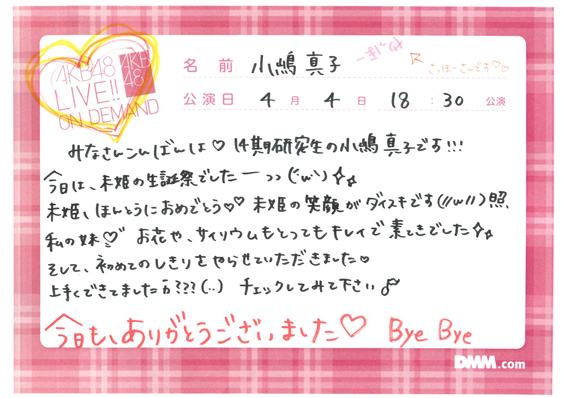 AKB48
LIVE!!
ON DEMAND
AKB
48
名前 小嶋 真子
さっほーさんです♡♡
公演日 4月 4日 18:30 公演
みなさんこんばんは♡ 14期研究生の小嶋真子です!!!
今日は、未姫の生誕祭でしたーっっ(´ω`)
未姫、ほんとうにおめでとう♡♡ 未姫の笑顔がダイスキです(//ω//)照
私の妹♡ お花や、サイリウムもとってもキレイで素てきでした
そして、初めてのしきりをやらせていただきました♡
上手くできてましたか???(..) チェックしてみて下さい
今日も、ありがとうございました♡ Bye Bye
DMM.com